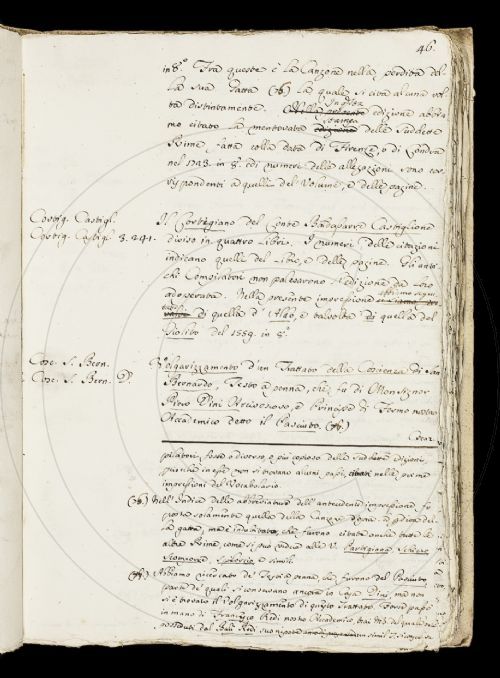 46.
in 8.° Tra queste è la Canzone nella perdita del-
la sua Gatta (76.) la quale si cita alcuna vol-
ta distintamente. Nella presente edizione abbia-
mo citato la mentovata edizione delle suddette
Rime, fatta colla data di Firenze, o di Londra
nel 1723. in 8. ed i numeri della allegazione sono cor-
rispondenti a quelli del Volume, e delle pagine.
Cortig. Castigl.
Cortig. Castigl. 3. 241.
Il Cortegiano del Conte Baldassarre Castiglione
diviso in quattro Libri. I numeri delle citazioni
indicano quelle del Libro, e delle pagine. Gli anti-
chi Compilatori non palesarono l'edizione da loro
adoperata. Nella presente impressione
di quella d'Aldo, e talvolta di quella del
Giolito del 1559. in 8.°
Cosc. S. Bern.
Cosc. S. Bern. D.
Volgarizzamento d'un Trattato della Coscienza di San
Bernardo, Testo a penna, che fu di Monsignor
Piero Dini Arcivescovo, e Principe di Fermo nostro
Accademico detto il Pasciuto.
pilatori, fosse o diverso, o più copioso delle suddette edizioni
poiché in esse non si trovano alcuni passi, citati nelle prime
impressioni del Vocabolario.
(76.) Nell'Indice delle abbreviature dell'antecedente impressione, fu
posta solamente quella della Canzone
la gatta, ma è indubitato, che furono citate anche tutte le
altre Rime, come si può vedere alle V. Partigiana, Schizzo
e simili.
Abbiamo ricercato de' Testi a penna, che furono del Pasciuto,
parte de' quali si conservano ancora in Casa Dini, ma non
si è trovato il Volgarizzamento di questo Trattato. Forse passò
in mano di Francesco Redi nostro Accademico, tra i MS. di quale
posseduti dal Balì Redi suo nipote